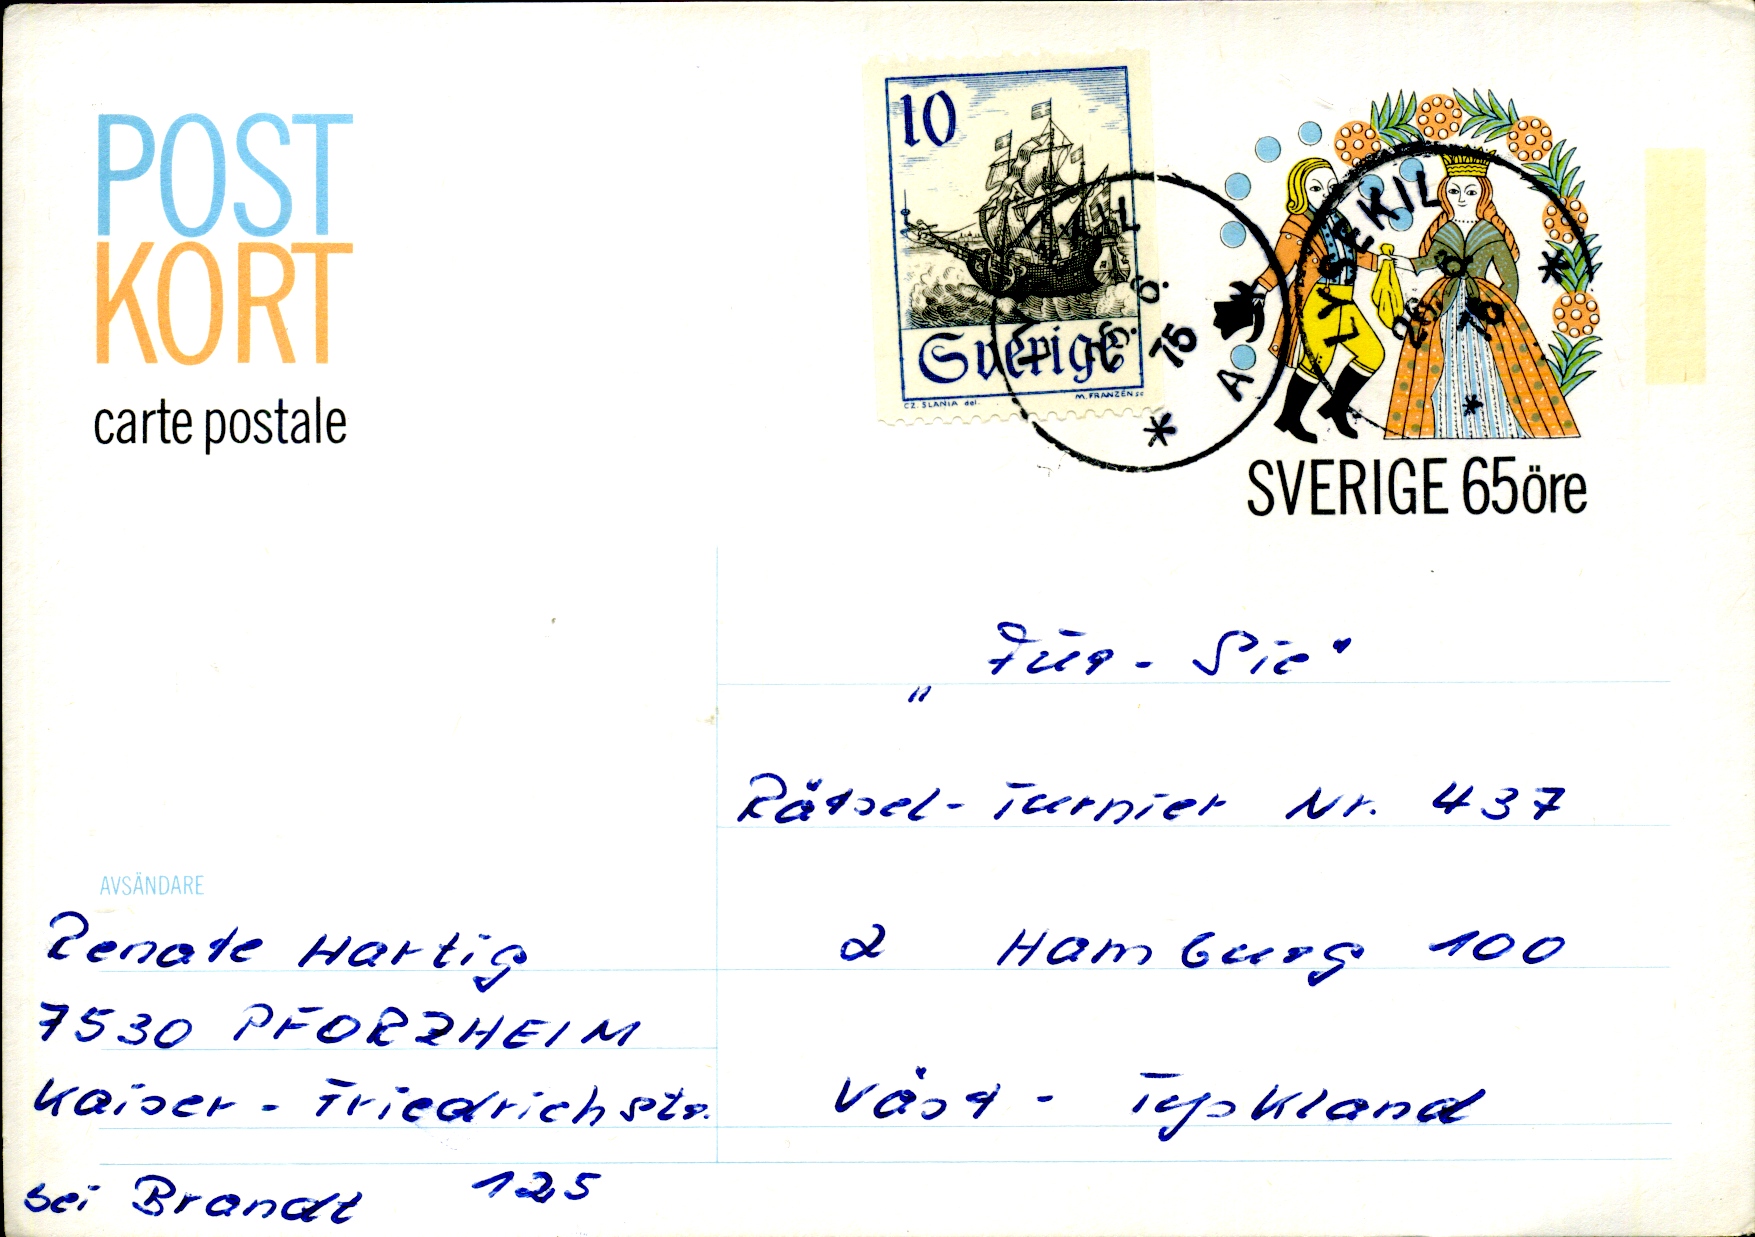 POST
KORT
carte postale
10
Sverige
CZ. SLANIA del.
M. FRANZÉN SC
LYSEKIL
75
A
SVERIGE 65öre
„Für-Sie“
Rätsel-Turnier Nr. 437
2 Hamburg 100
Väst-Tyskland
AVSÄNDARE
Renate Hartig
7530 PFORZHEIM
Kaiser-Friedrichstr.
bei Brandt 125